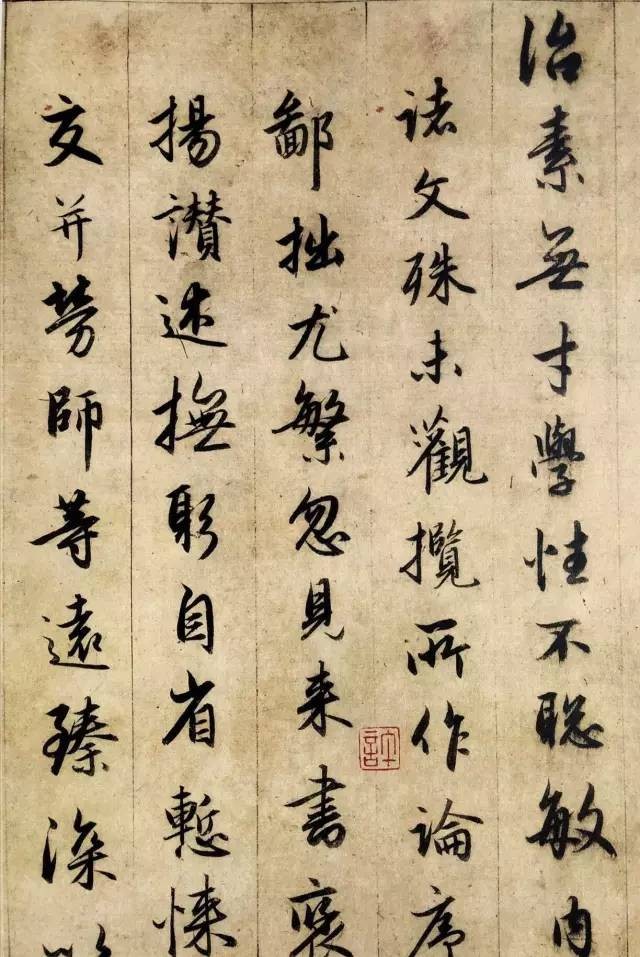 治素無才學性不聰敏內
諸文殊未觀攬所作論序
鄙拙尤繁忽見来書褒
揚讃述撫躬自省慙悚
交并勞師等遠臻深
許